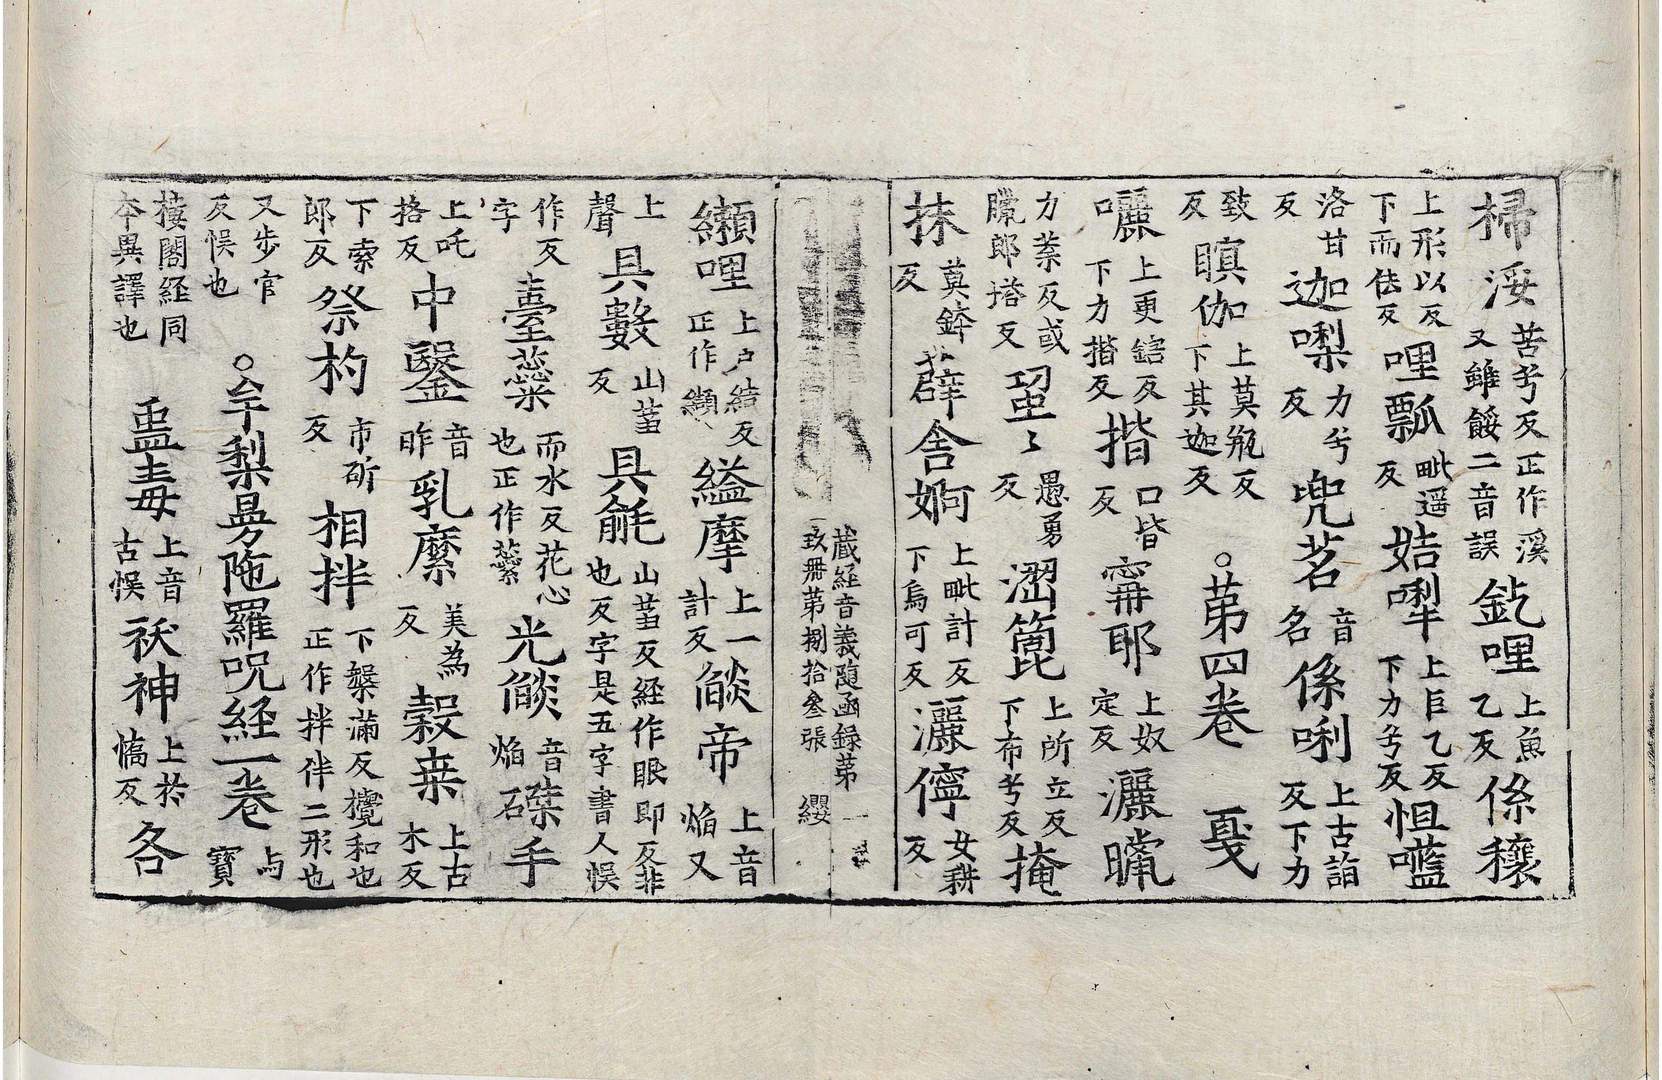 掃浽苦兮反正作溪又雖餒二音誤釳哩上魚乙反係穰
上形以反下而佉反哩瓢毗遥反姞㗚上巨乙反下力兮反怚囕
洛甘反迦㗚力兮反兜茗音名係唎上古詣反下力
致反瞋伽上莫瓶反下其迦反○第四卷戛
囇上更鎋反下力揩反揩口皆反寗耶上奴定反灑矃
力荼反或矃郎塔反巩〻愚勇反澀箆上所立反下布兮反掩
抹莫鉢反薜舎婀上毗計反下烏可反灑儜女耕反
藏経音義随函録第一
玖册第捌拾叄張 纓
纈哩上戸結反正作纈縊摩上一計反㷔帝上音焰又
上聲具數山𦭘反具毹山𦭘反経作眼即反非也反字是五字書人悮
作反字臺蘂而水反花心也正作蘂光㷔音焰磔手
上吒格反中鑿音昨乳糜美為反穀枲上古木反
下索郎反祭杓市斫反相拌下槃滿反攪和也正作拌伴二形也
又步官反悮也○牟梨曼陁羅呪経一卷与寶
樓閣経同本異譯也蛊毒上音古悮祆神上於憍反各